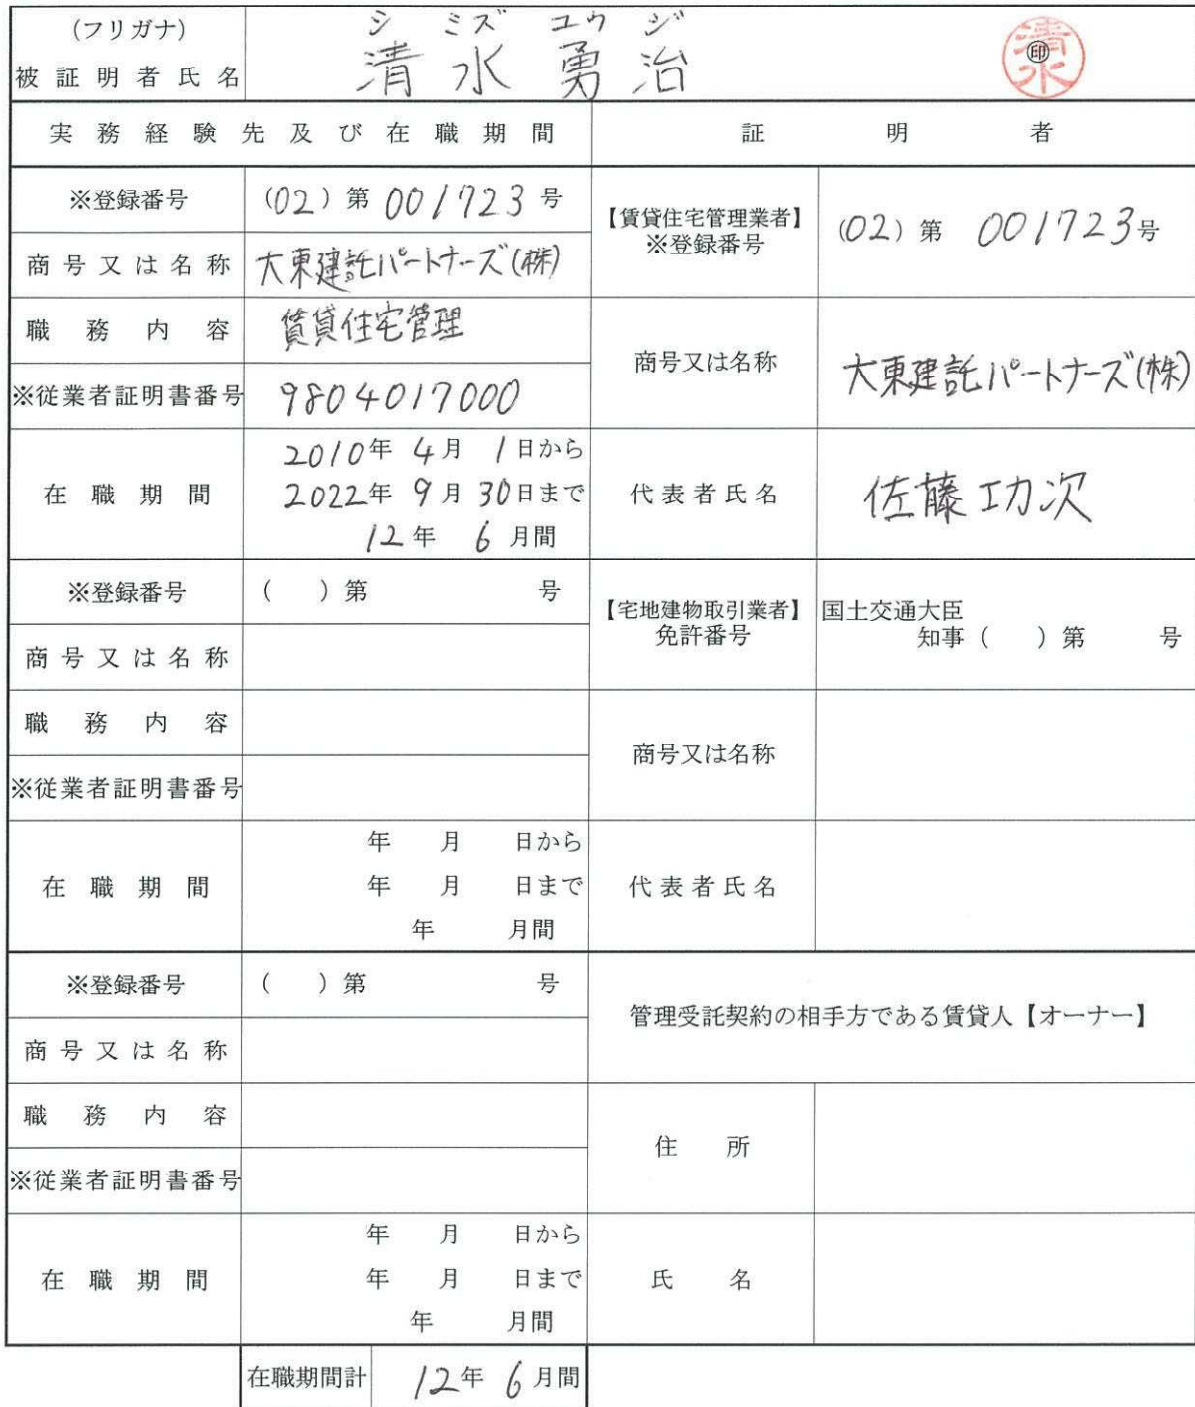 (フリガナ) シ ミズ ユウ ジ
被証明者氏名 清水勇治 ㊞ 清水
実務経験先及び在職期間 証明者
※登録番号 (02)第001723号 【賃貸住宅管理業者】※登録番号 (02)第001723号
商号又は名称 大東建託パートナーズ(株)
職務内容 賃貸住宅管理 商号又は名称 大東建託パートナーズ(株)
※従業者証明書番号 9804017000
2010年4月1日から
在職期間 2022年9月30日まで 代表者氏名 佐藤功次
12年6月間
※登録番号 ( )第 号 【宅地建物取引業者】免許番号 国土交通大臣
知事( )第 号
商号又は名称
職務内容 商号又は名称
※従業者証明書番号
年 月 日から
在職期間 年 月 日まで 代表者氏名
年 月間
※登録番号 ( )第 号 管理受託契約の相手方である賃貸人【オーナー】
商号又は名称
職務内容 住所
※従業者証明書番号
年 月 日から
在職期間 年 月 日まで 氏名
年 月間
在職期間計 12年6月間